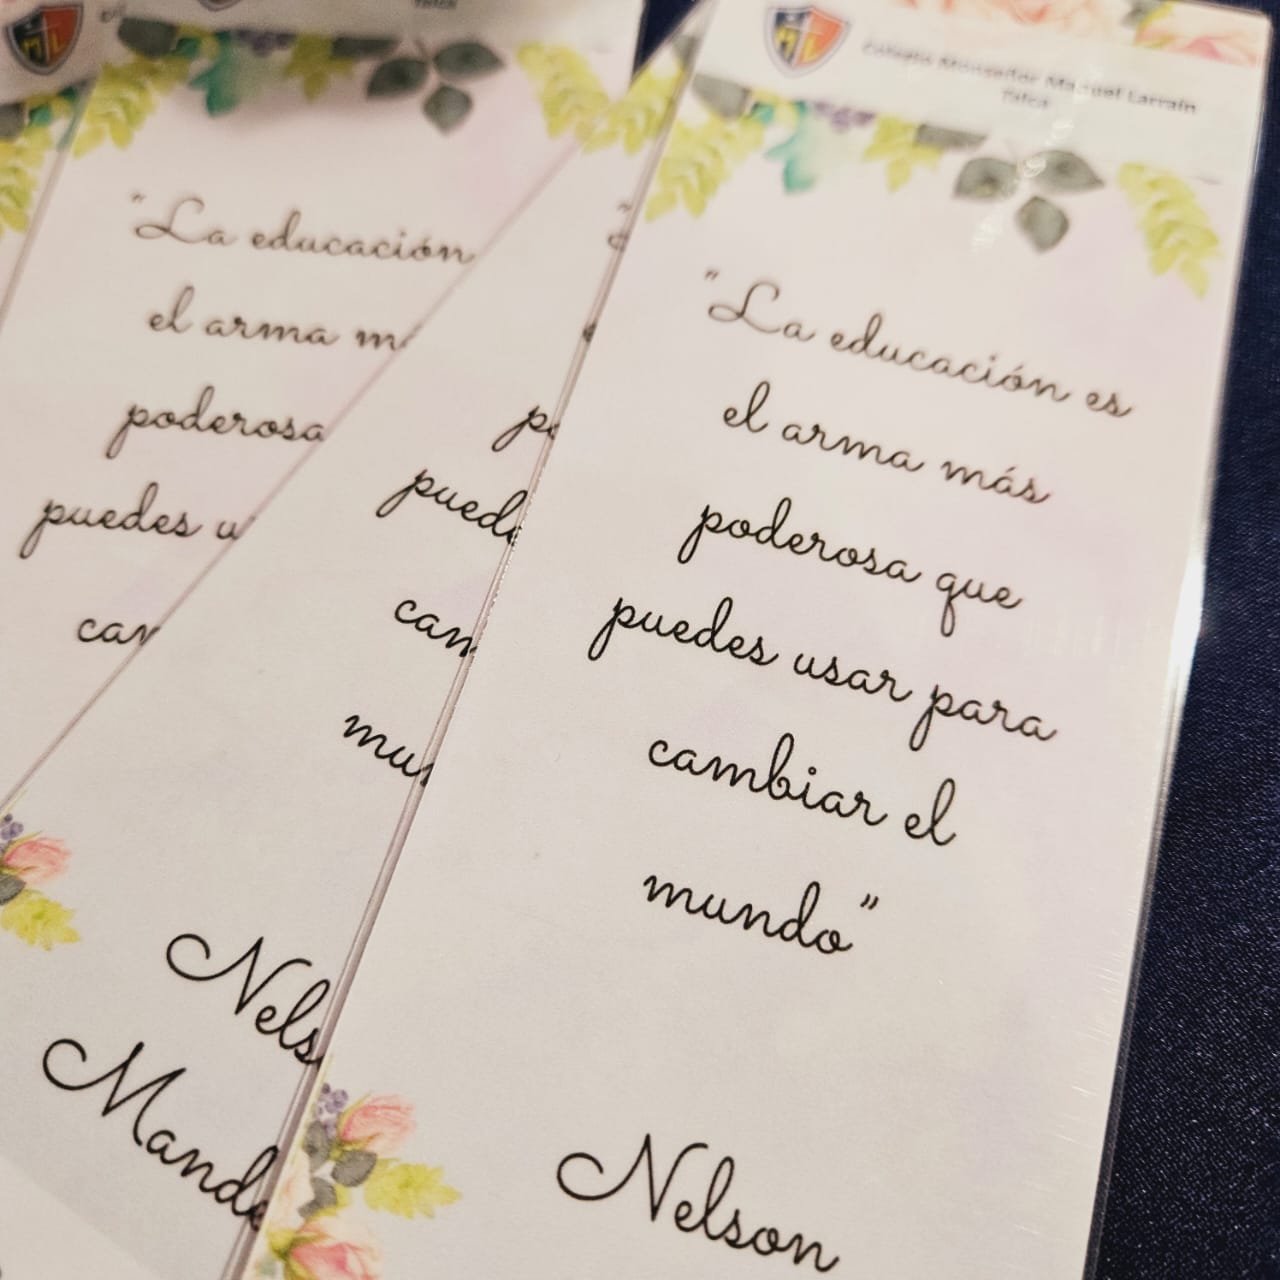 Colegio Monseñor Manuel Larraín
Talca
"La educación es
el arma más
poderosa que
puedes usar para
cambiar el
mundo"
Nelson
"La educación
el arma m
poderosa
puedes u
cam
pued
cam
mun
Nels
Mande
Talca